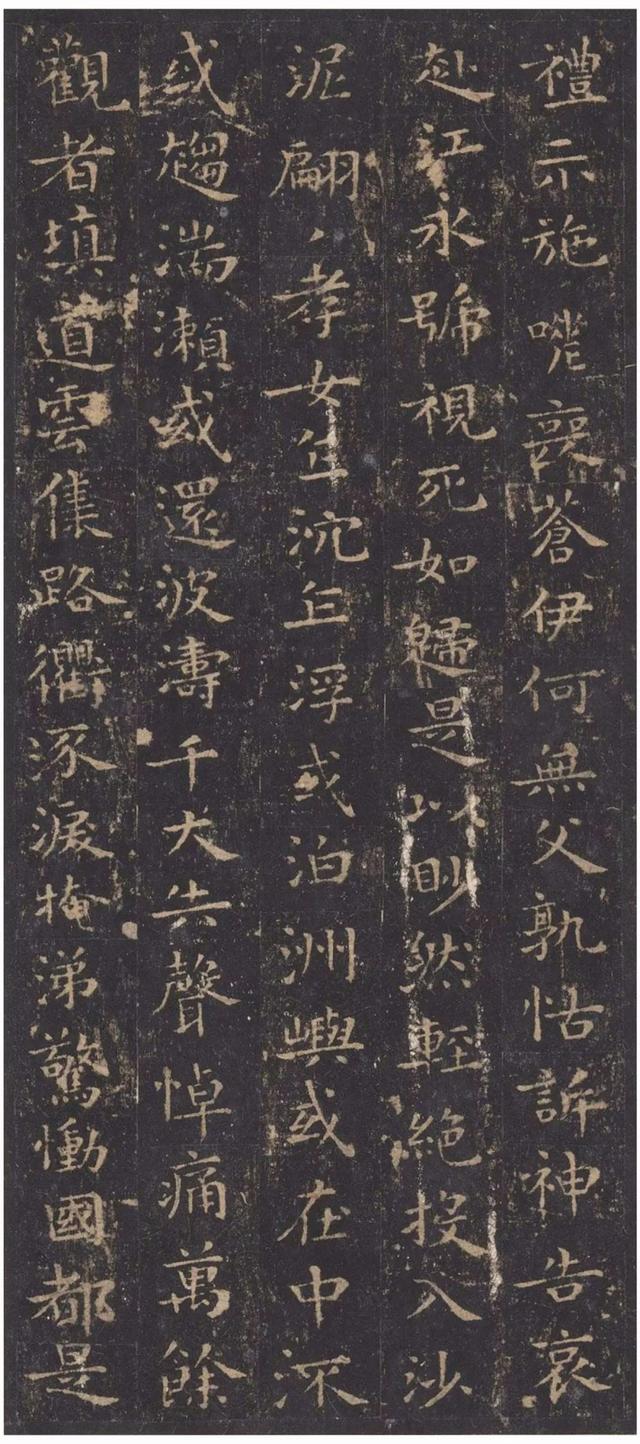 禮示施嗟喪蒼伊何無父孰怙訴神告哀
赴江永號視死如歸是以眇然輕絕投入沙
泥翩〻孝女乍沉乍浮或泊洲嶼或在中流
或趨湍瀨或還波濤千夫失聲悼痛萬餘
觀者填道雲集路衢流淚掩涕驚慟國都是